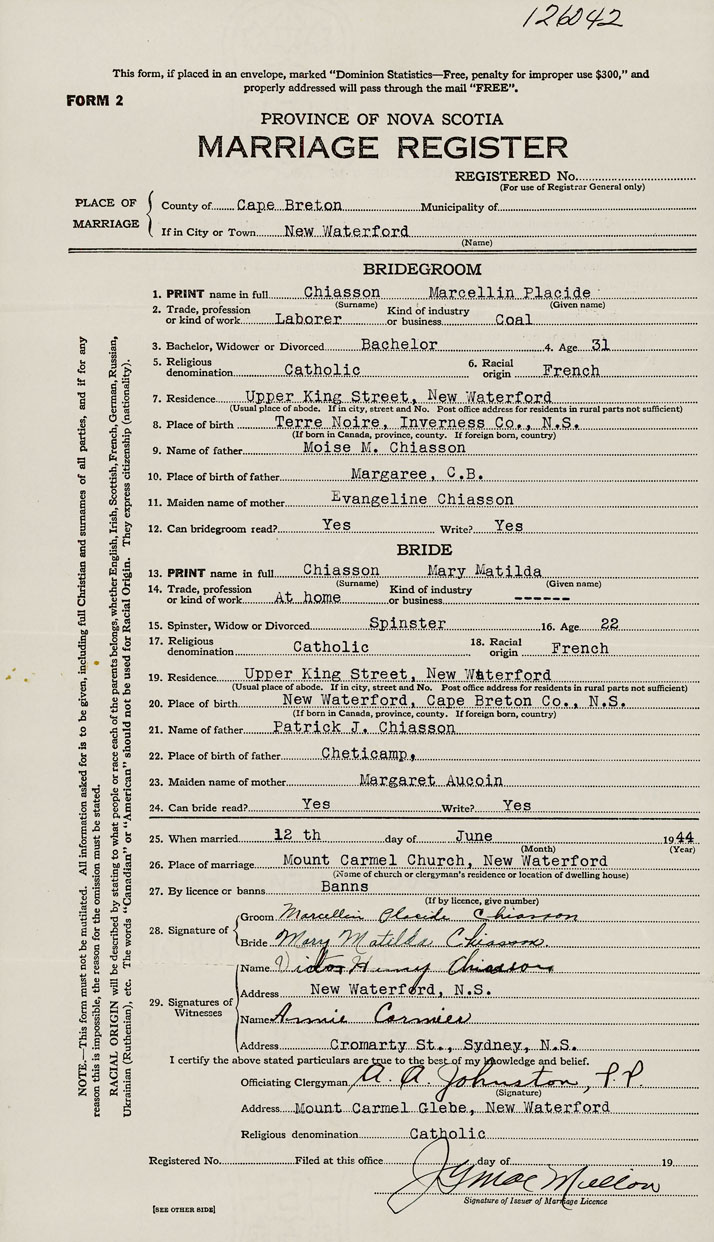 126042
This form, if placed in an envelope, marked “Dominion Statistics—Free, penalty for improper use $300,” and
properly addressed will pass through the mail “FREE”.
FORM 2
PROVINCE OF NOVA SCOTIA
MARRIAGE REGISTER
REGISTERED No.
(For use of Registrar General only)
PLACE OF MARRIAGE
County of Cape Breton Municipality of
If in City or Town New Waterford
(Name)
BRIDEGROOM
1. PRINT name in full Chiasson Marcellin Placide
(Surname) (Given name)
2. Trade, profession or kind of work Laborer Kind of industry or business Coal
3. Bachelor, Widower or Divorced Bachelor 4. Age 31
5. Religious denomination Catholic 6. Racial origin French
7. Residence Upper King Street, New Waterford
(Usual place of abode. If in city, street and No. Post office address for residents in rural parts not sufficient)
8. Place of birth Terre Noire, Inverness Co., N.S.
(If born in Canada, province, county. If foreign born, country)
9. Name of father Moise M. Chiasson
10. Place of birth of father Margaree, C.B.
11. Maiden name of mother Evangeline Chiasson
12. Can bridegroom read? Yes Write? Yes
BRIDE
13. PRINT name in full Chiasson Mary Matilda
(Surname) (Given name)
14. Trade, profession or kind of work At home Kind of industry or business ------
15. Spinster, Widow or Divorced Spinster 16. Age 22
17. Religious denomination Catholic 18. Racial origin French
19. Residence Upper King Street, New Waterford
(Usual place of abode. If in city, street and No. Post office address for residents in rural parts not sufficient)
20. Place of birth New Waterford, Cape Breton Co., N.S.
(If born in Canada, province, county. If foreign born, country)
21. Name of father Patrick J. Chiasson
22. Place of birth of father Cheticamp,
23. Maiden name of mother Margaret Aucoin
24. Can bride read? Yes Write? Yes
25. When married 12 th day of June 1944
(Month) (Year)
26. Place of marriage Mount Carmel Church, New Waterford
(Name of church or clergyman's residence or location of dwelling house)
27. By licence or banns Banns
(If by licence, give number)
28. Signature of
Groom Marcellin Placide Chiasson
Bride Mary Matilda Chiasson.
29. Signatures of Witnesses
Name Victor Henry Chiasson
Address New Waterford, N.S.
Name Annie Cormier
Address Cromarty St., Sydney, N.S.
I certify the above stated particulars are true to the best of my knowledge and belief.
Officiating Clergyman A. A. Johnston, P.P.
(Signature)
Address Mount Carmel Glebe, New Waterford
Religious denomination Catholic
Registered No. Filed at this office day of 19
Signature of Issuer of Marriage Licence
[SEE OTHER SIDE]
NOTE.—This form must not be mutilated. All information asked for is to be given, including full Christian and surnames of all parties, and if for any
reason this is impossible, the reason for the omission must be stated.
RACIAL ORIGIN will be described by stating to what people or race each of the parents belongs, whether English, Irish, Scottish, French, German, Russian,
Ukrainian (Ruthenian), etc. The words “Canadian” or “American” should not be used for Racial Origin. They express citizenship (nationality).